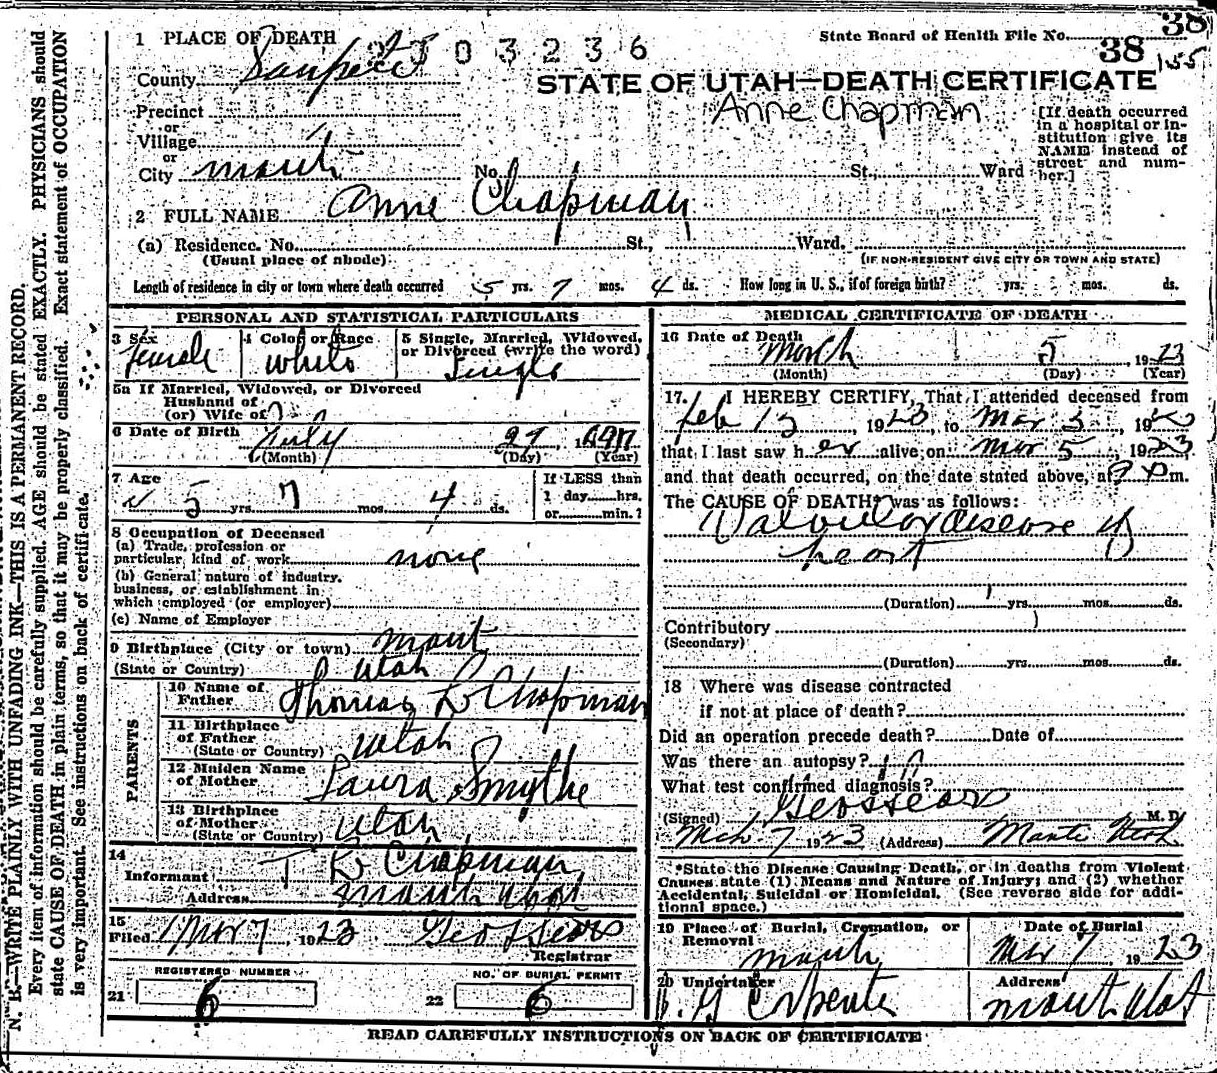 38
State Board of Health File No. 38 155
2303236
1 PLACE OF DEATH
County Sanpete
STATE OF UTAH—DEATH CERTIFICATE
Anne Chapman
Precinct
or
Village
or
City Manti No. St., Ward
[If death occurred
in a hospital or in-
stitution give its
NAME instead of
street and num-
ber.]
2 FULL NAME Anne Chapman
(a) Residence. No. St., Ward.
(Usual place of abode) (IF NON-RESIDENT GIVE CITY OR TOWN AND STATE)
Length of residence in city or town where death occurred 5 yrs. 7 mos. 4 ds. How long in U. S., if of foreign birth? yrs. mos. ds.
PERSONAL AND STATISTICAL PARTICULARS
3 Sex Female
4 Color or Race White
5 Single, Married, Widowed,
or Divorced (write the word)
Single
5a If Married, Widowed, or Divorced
Husband of
(or) Wife of
6 Date of Birth July 29 1
(Month) (Day) (Year)
7 Age
5 yrs. 7 mos. 4 ds.
If LESS than
1 day hrs.
or min.?
8 Occupation of Deceased
(a) Trade, profession or
particular, kind of work none
(b) General nature of industry,
business, or establishment in
which employed (or employer)
(c) Name of Employer
9 Birthplace (City or town) Manti
(State or Country) Utah
PARENTS
10 Name of
Father Thomas L Chapman
11 Birthplace
of Father
(State or Country) Utah
12 Maiden Name
of Mother Laura Smythe
13 Birthplace
of Mother
(State or Country) Utah
14
Informant T L Chapman
Address Manti Utah
15
Filed Mar 7, 1923 Geo L Sears
Registrar
REGISTERED NUMBER
21 6
NO. OF BURIAL PERMIT
22 6
MEDICAL CERTIFICATE OF DEATH
16 Date of Death
March 5 1923
(Month) (Day) (Year)
17. I HEREBY CERTIFY, That I attended deceased from
Feb 13, 1923, to Mar 5, 19
that I last saw her alive on Mar 5, 1923.
and that death occurred, on the date stated above, at 9 P m.
The CAUSE OF DEATH* was as follows:
Valvular disease of
heart
(Duration) yrs. mos. ds.
Contributory
(Secondary)
(Duration) yrs. mos. ds.
18 Where was disease contracted
if not at place of death?
Did an operation precede death? Date of
Was there an autopsy?
What test confirmed diagnosis?
(Signed) Geo L Sears M. D.
Mch 7 1923 (Address) Manti Utah
*State the Disease Causing Death, or in deaths from Violent
Causes state (1) Means and Nature of Injury; and (2) whether
Accidental, Suicidal or Homicidal. (See reverse side for addi-
tional space.)
19 Place of Burial, Cremation, or
Removal
Manti
Date of Burial
Mar 7, 1923
20 Undertaker
Address
Manti Utah
READ CAREFULLY INSTRUCTIONS ON BACK OF CERTIFICATE
N. B.—WRITE PLAINLY WITH UNFADING INK—THIS IS A PERMANENT RECORD.
Every item of information should be carefully supplied. AGE should be stated EXACTLY. PHYSICIANS should
state CAUSE OF DEATH in plain terms, so that it may be properly classified. Exact statement of OCCUPATION
is very important. See instructions on back of certificate.